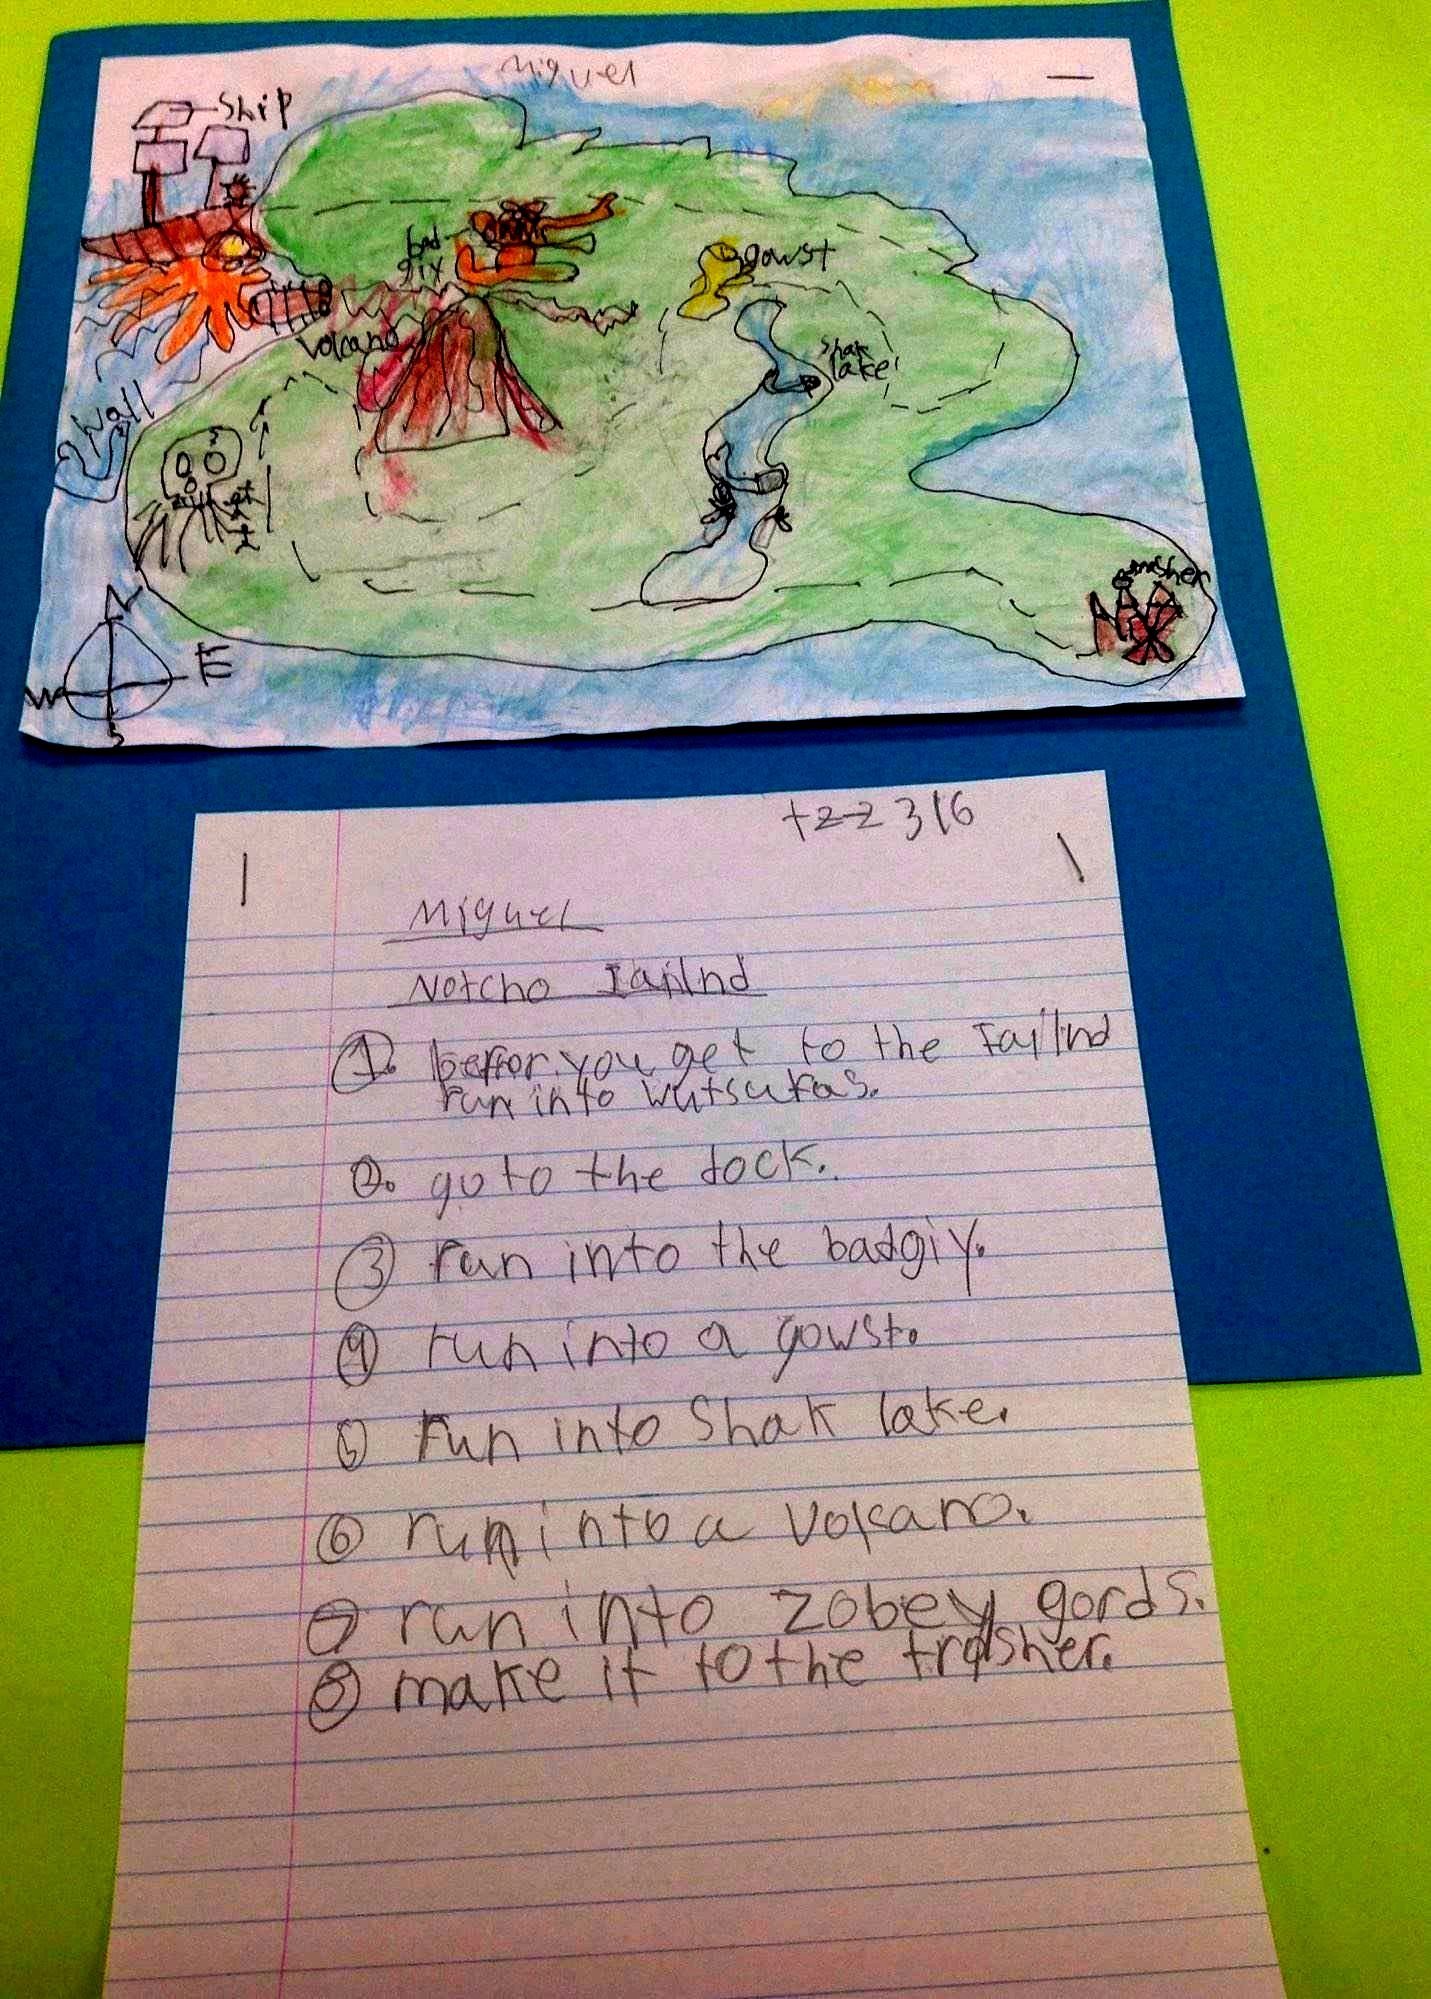 Miguel
Ship
bad
gix
gowst
volcano
Shak
lake
wall
trasher
N
W E
S
+2-2 316
Miguel
Notcho Iailnd
1. beffor you get to the Iailnd
run into wutsukas.
2. go to the dock.
3 run into the badgiy.
4 run into a gowst.
5 run into Shak lake.
6 run into a volcano.
7 run into zobey gords.
8 make it to the trasher.